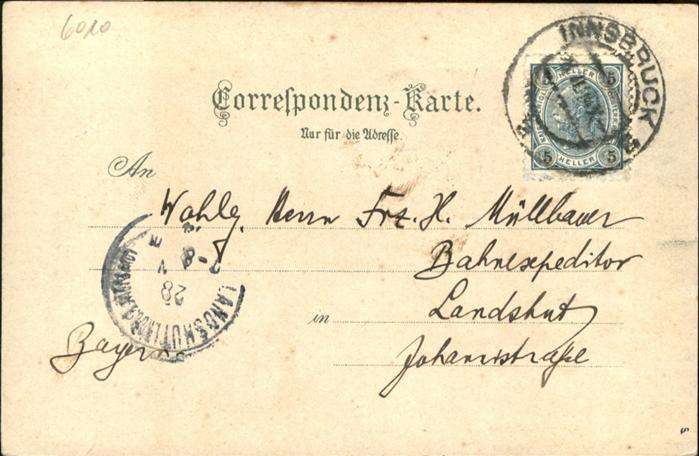 6010
INNSBRUCK
5 5
5 HELLER 5
Correspondenz-Karte.
Nur für die Adresse.
An
Wohlg. Herrn Frz. H. Müllbauer
Bahnexpeditor
in Landshut
Johannistraße
Bayern
LANDSHUT
28
V
8
5